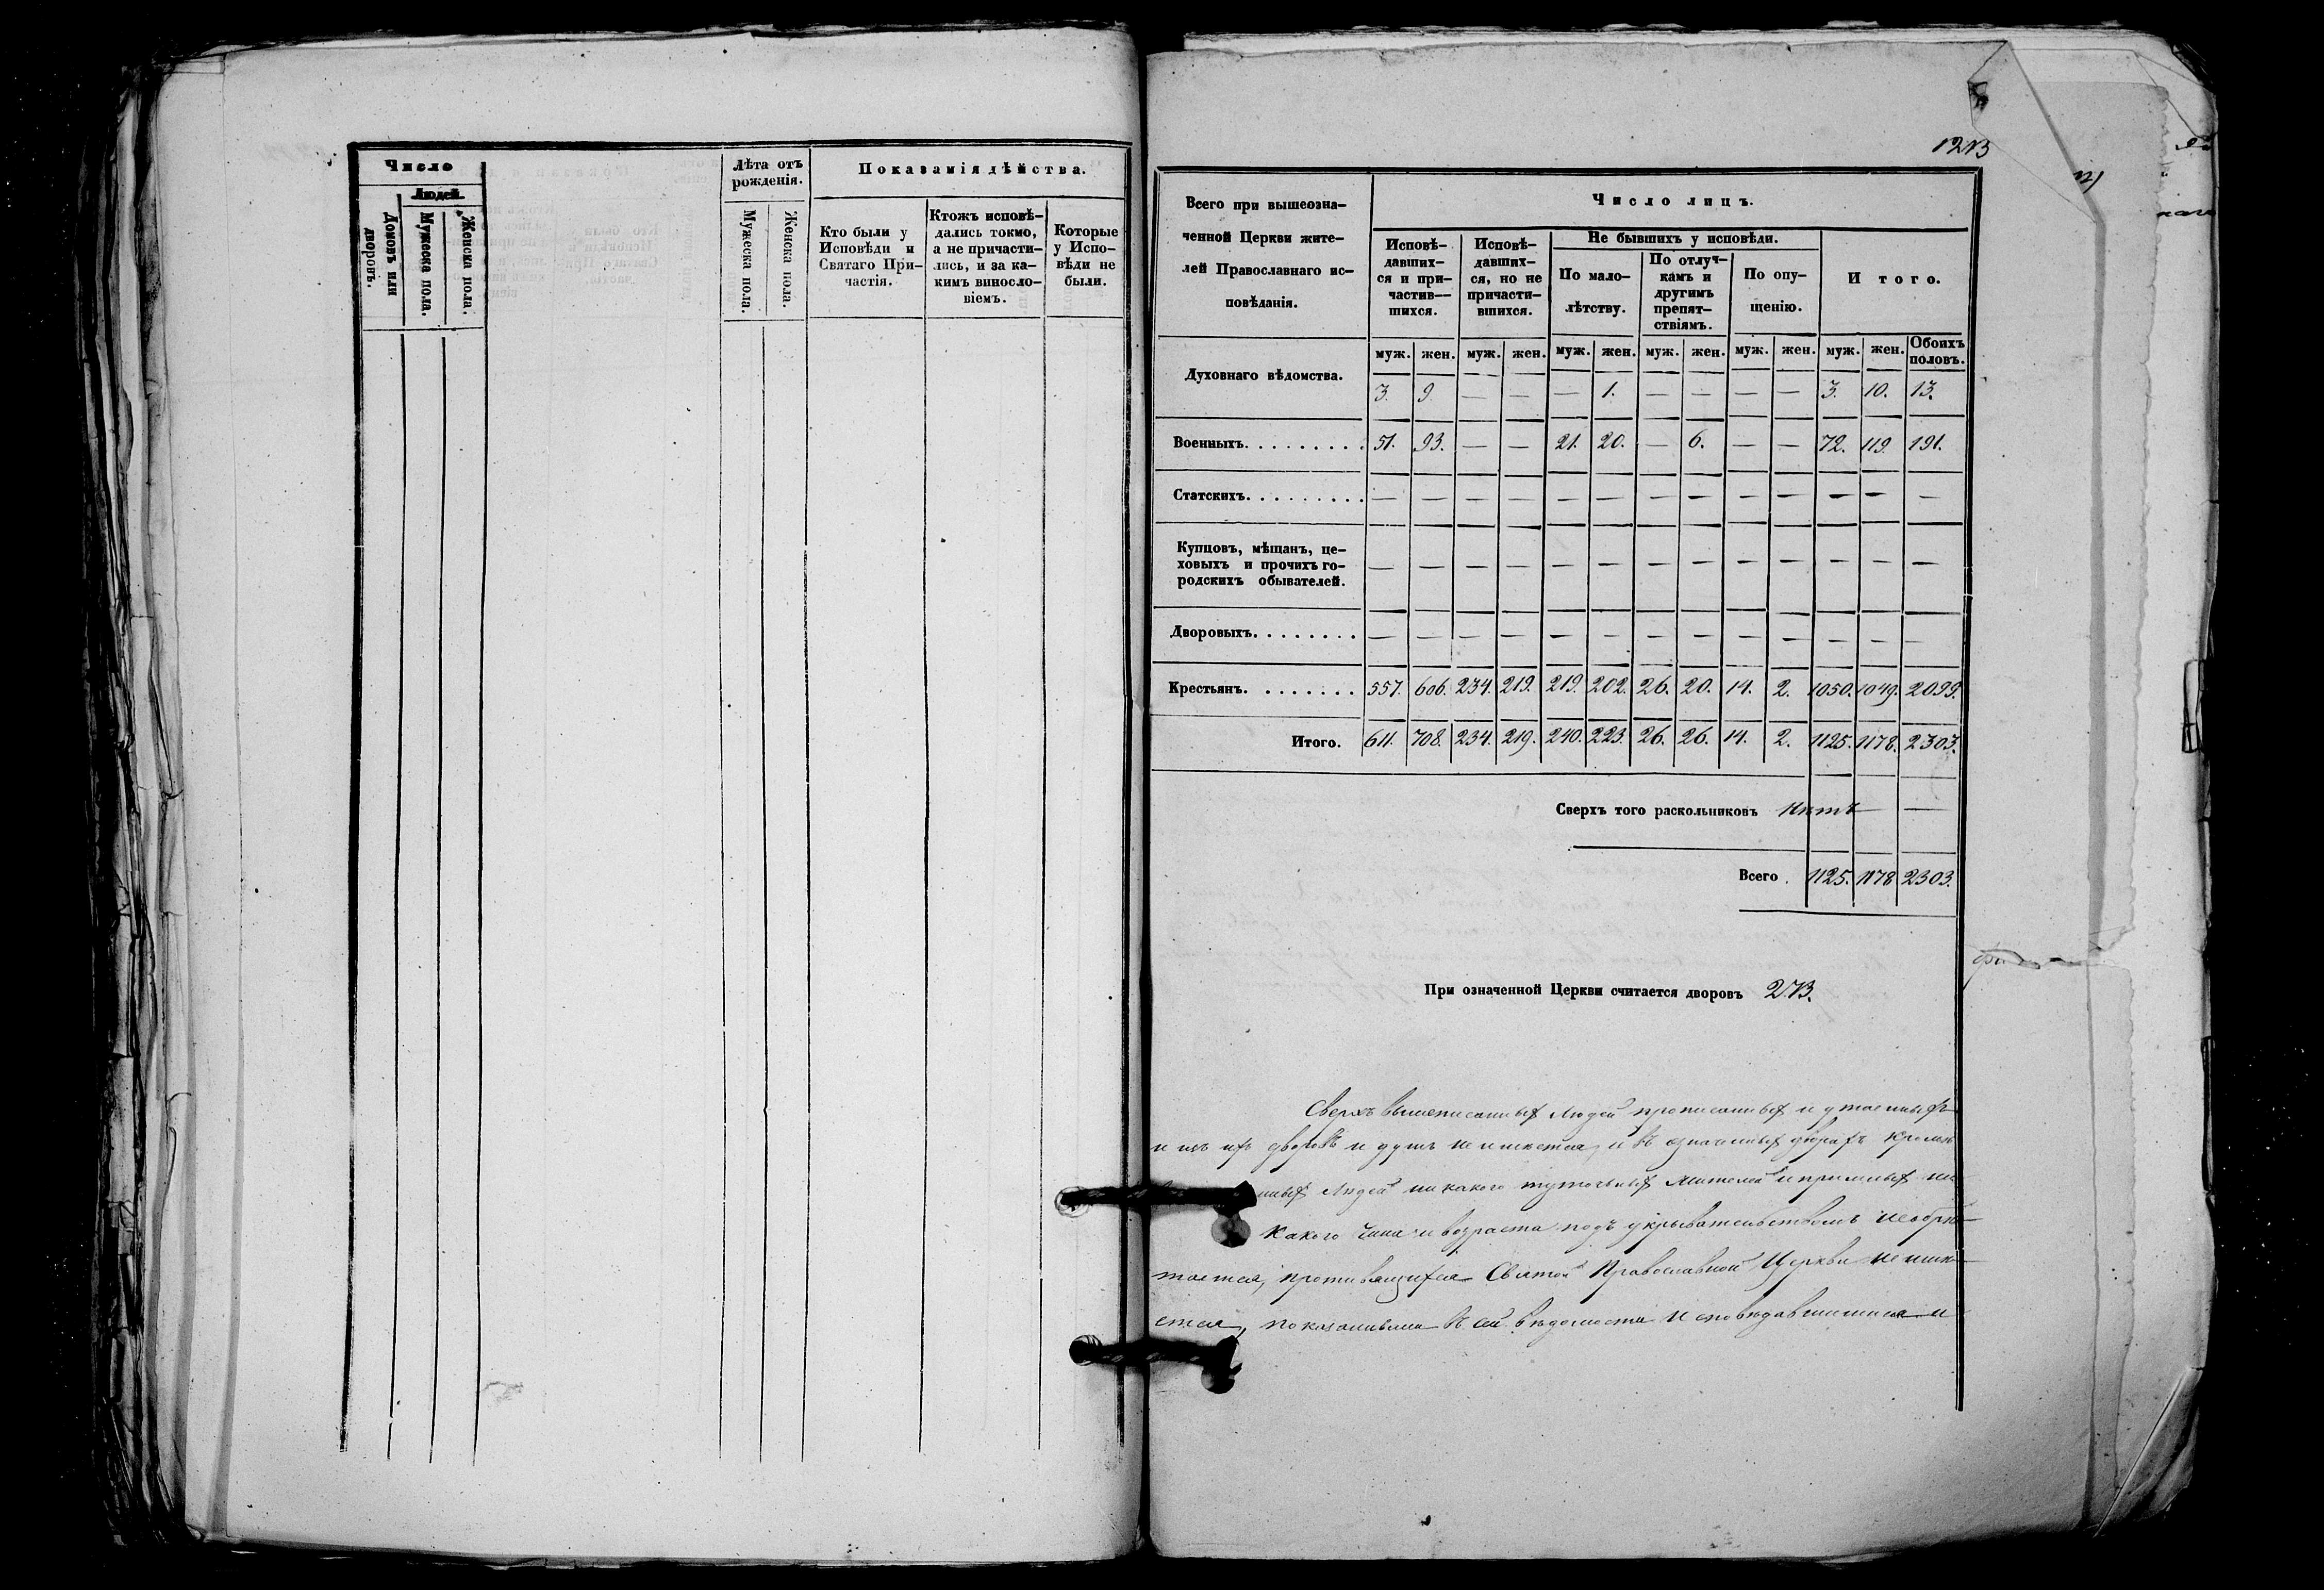 Число
Людей.
Домовъ или дворовъ.
Мужеска пола.
Женска пола.
Лѣта отъ
рожденія.
Мужеска пола.
Женска пола.
Показамія дѣйства.
Кто были у
Исповѣди и
Святаго При-
частія.
Ктожъ исповѣ-
дались токмо,
а не причасти-
лись, и за ка-
кимъ винosло-
віемъ.
Которые
у Испо-
вѣди не
были.
1213
Всего при вышеозна-
ченной Церкви жите-
лей Православнаго ис-
повѣданія.
Число лицъ.
Исповѣ-
давших-
ся и при-
частив-
шихся.
Исповѣ-
давших-
ся, но не
причасти-
вшихся.
Не бывшихъ у исповѣди.
По мало-
лѣтству.
По отлуч-
камъ и
другимъ
препят-
ствіямъ.
По опу-
щенію.
Итого.
муж. жен. муж. жен. муж. жен. муж. жен. муж. жен. муж. жен. Обоихъ половъ.
Духовнаго вѣдомства. 3. 9. — — — 1. — — — — 3. 10. 13.
Военныхъ. . . . . . . . . 51. 93. — — 21. 20. — 6. — — 72. 119. 191.
Статскихъ. . . . . . . . . — — — — — — — — — — — — —
Купцовъ, мѣщанъ, це-
ховыхъ и прочихъ го- — — — — — — — — — — — — —
родскихъ обывателей.
Дворовыхъ. . . . . . . . — — — — — — — — — — — — —
Крестьянъ. . . . . . . . 557. 606. 234. 219. 219. 202. 26. 20. 14. 2. 1050. 1049. 2099.
Итого. 611. 708. 234. 219. 240. 223. 26. 26. 14. 2. 1125. 1178. 2303.
Сверхъ того раскольниковъ нѣтъ —
Всего . 1125. 1178 2303.
При означенной Церкви считается дворовъ 273.
Сверхъ вышеписанныхъ людей прописанныхъ и утаенныхъ
дворовъ и душъ не имѣется, и въ означенныхъ дворахъ кромѣ
людей никакого чина и приличныхъ ни
какого чина и возраста подъ укрывательствомъ необрѣ-
тается, противящихся Святой Православной Церкви не имѣ-
ется, показанныя въ сей вѣдомости исповѣдавшимися и